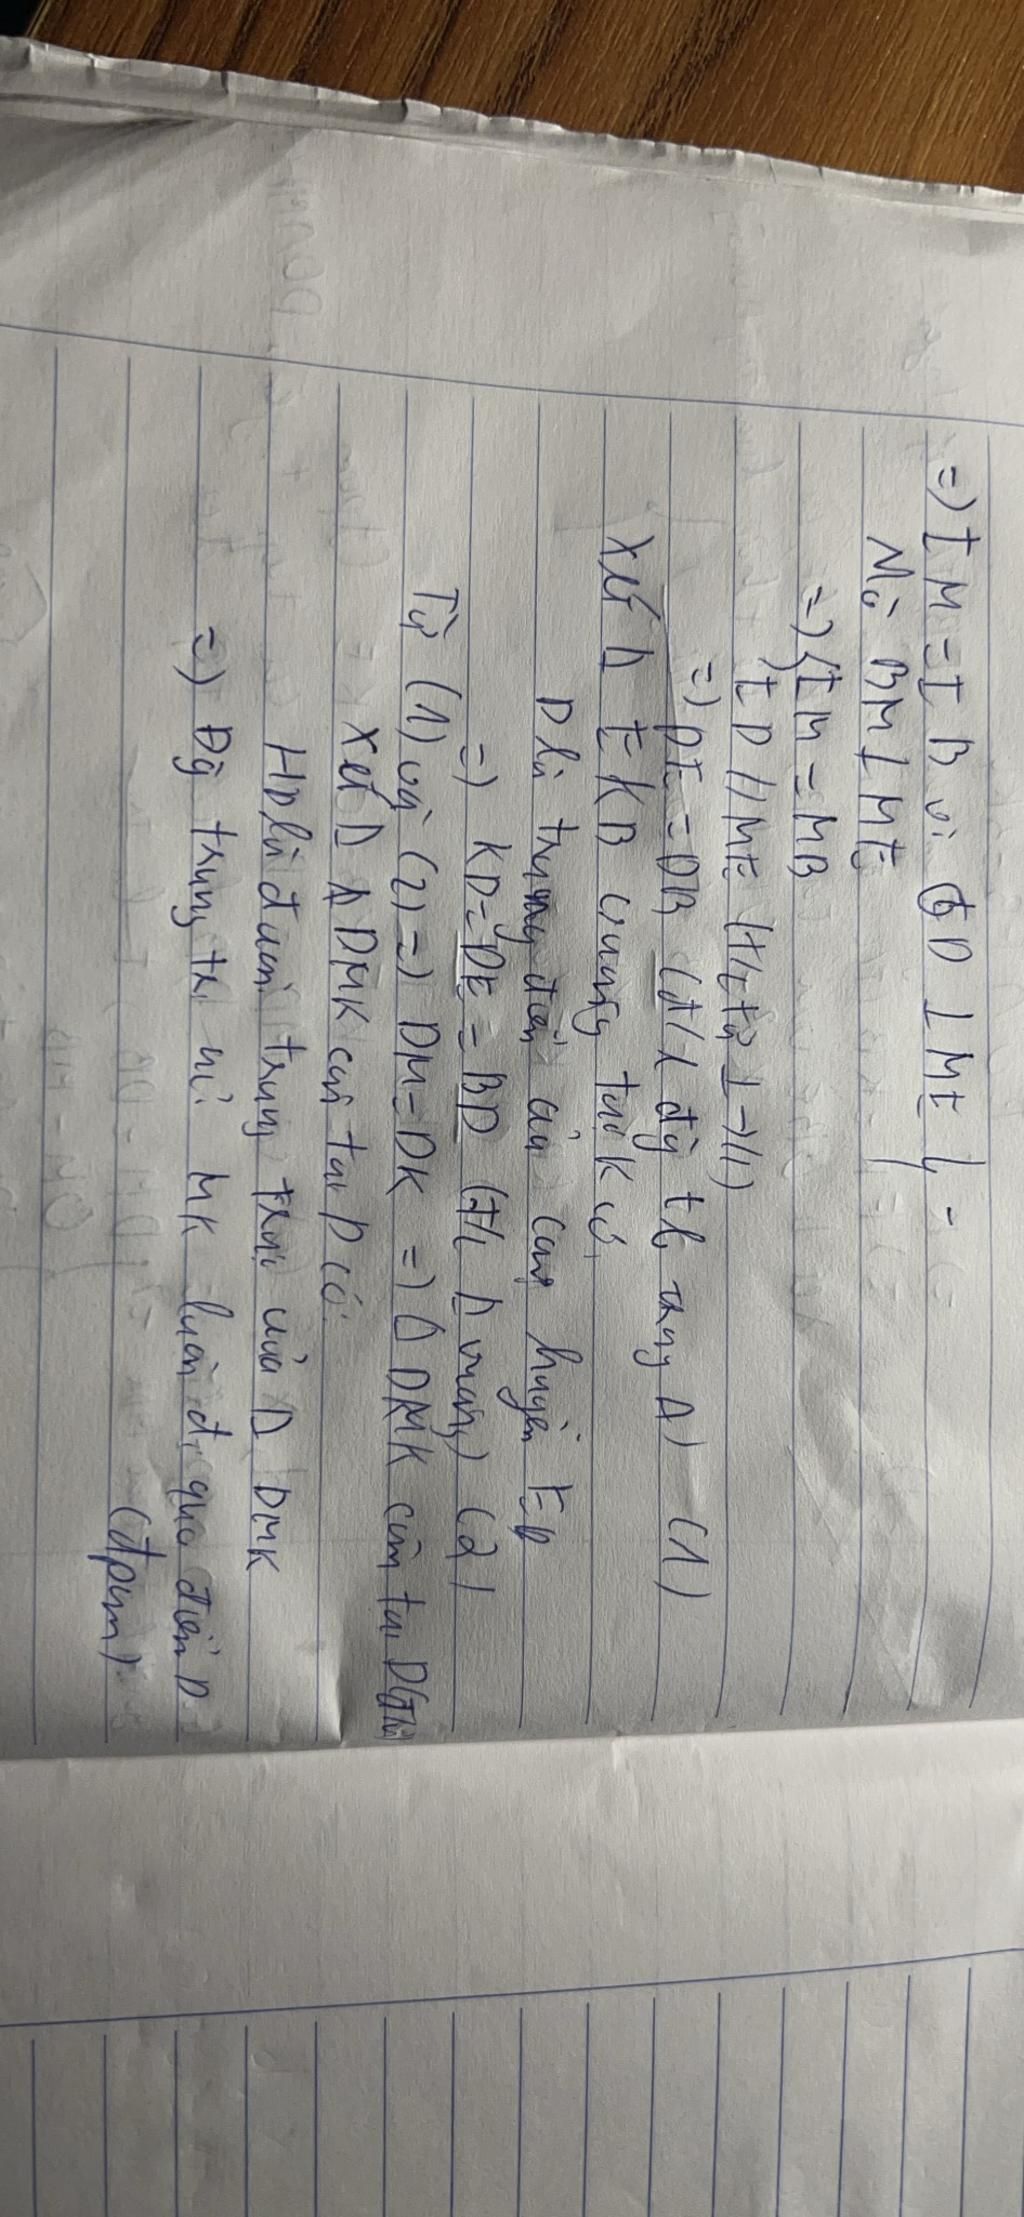 =) IM = IB và OD ⊥ ME
Mà BM ⊥ ME
=) { IM = MB
ID // ME (t/c từ ⊥ → //)
=) DE = DB (đ/l đg tb trong Δ) (1)
Xét Δ EKB vuông tại K có
D là trung điểm của cạnh huyền EB
=) KD = DE = BD (t/c Δ vuông) (2)
Từ (1) và (2) =) DM = DK =) Δ DMK cân tại D
Xét Δ DMK cân tại D có
HD là đường trung trực của Δ DMK
=) Đg trung trực MK luôn đi qua điểm D
(đpcm)